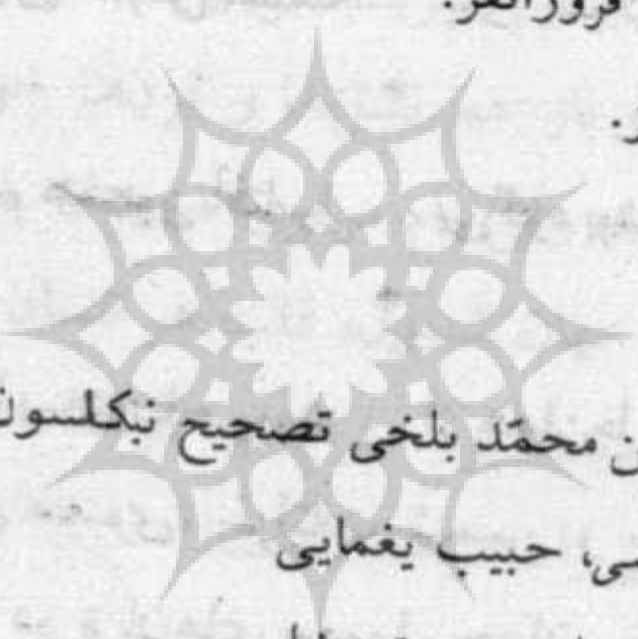 فروزانفر.
ن محمّد بلخی تصحیح نیکلسون
سی، حبیب یغمایی